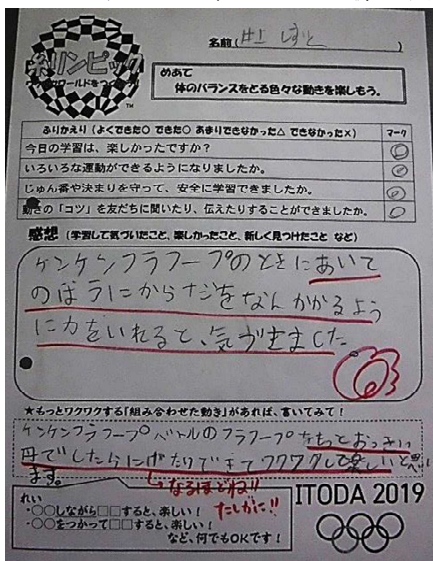 糸リンピック
ワールドをつ
TM
名前(井上          )
めあて
体のバランスをとる色々な動きを楽しもう。
ふりかえり(よくできた◎ できた○ あまりできなかった△ できなかった×)
マーク
今日の学習は、楽しかったですか?
◎
いろいろな運動ができるようになりましたか。
◎
じゅん番や決まりを守って、安全に学習できましたか。
◎
動きの「コツ」を友だちに聞いたり、伝えたりすることができましたか。
○
感想 (学習して気づいたこと、楽しかったこと、新しく見つけたこと など)
ケンケンフラフープのときにあいて
のほうにからナジをなんかかるよう
に力をいれると、気が生ました
★もっとワクワクする「組み合わせた動き」があれば、書いてみて!
ケンケンフラフープバトルのフラフープをもっとおっきい
円でしたらにげたりできてワクワクして楽しいと思い
ます。
なるほどね!!
たしかに!!
れい
・○○しながら□□すると、楽しい!
・○○をつかって□□すると、楽しい!
など、何でもOKです!
ITODA 2019